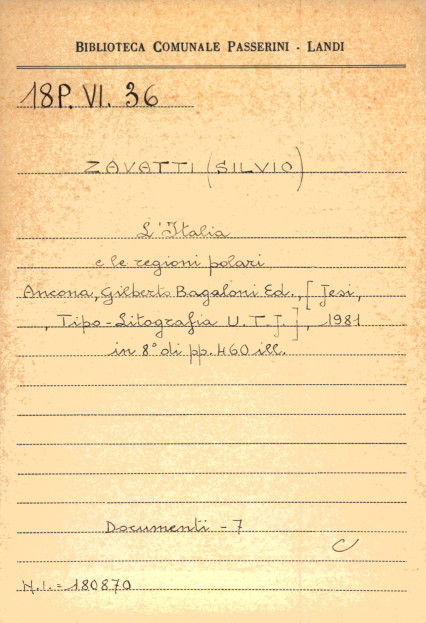 BIBLIOTECA COMUNALE PASSERINI - LANDI
18P. VI. 36
ZAVATTI (SILVIO)
L'Italia
e le regioni polari
Ancona, Gilberto Bagaloni Ed., [Jesi,
, Tipo-Litografia U.T.J.], 1981
in 8° di pp. 460 ill.
Documenti - 7
C
N.I. = 180870